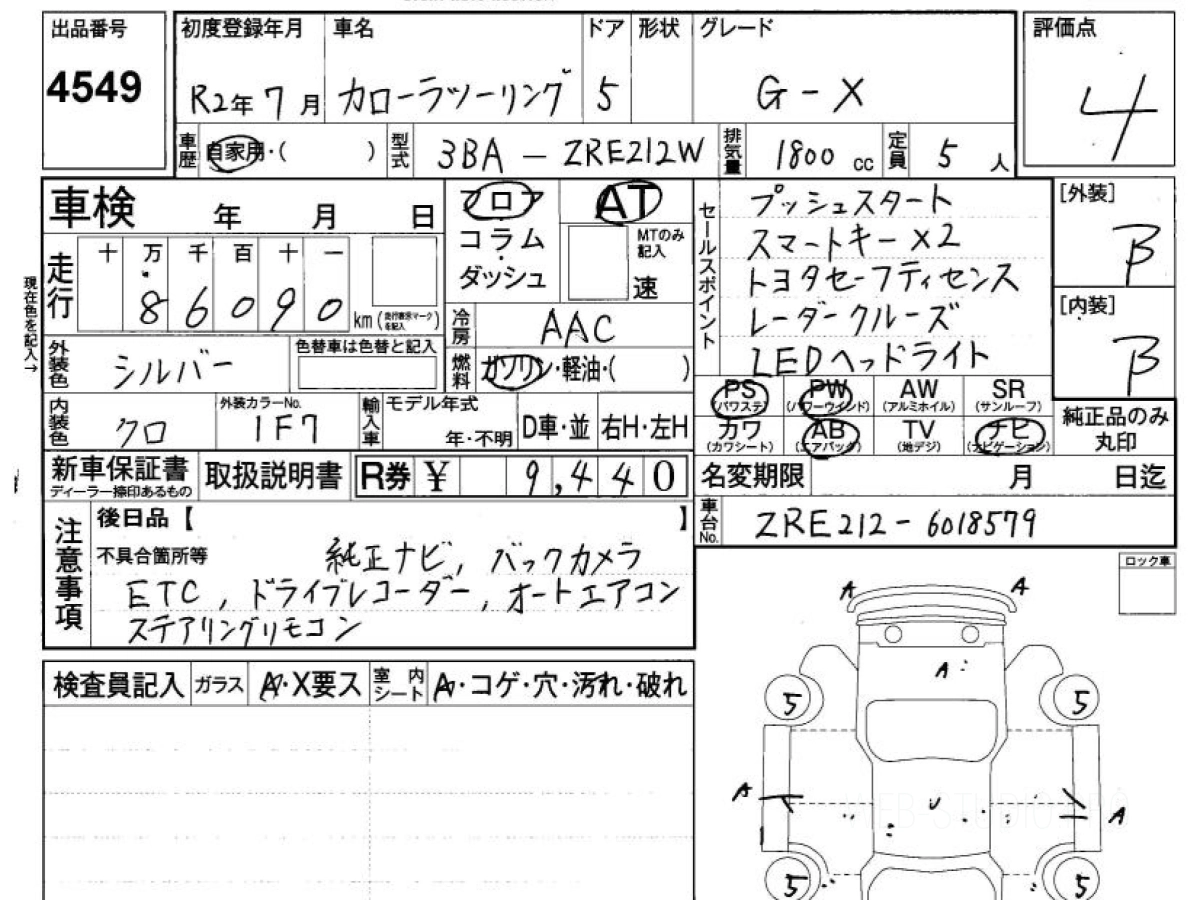 出品番号
4549
初度登録年月 車名 ドア 形状 グレード
R2年7月 カローラツーリング 5 G-X
評価点
4
車歴 自家用・( ) 型式 3BA-ZRE212W 排気量 1800cc 定員 5人
車検 年 月 日
走行 十 万 千 百 十 一
86090 km(走行表示マークを記入)
現在色を記入→
外装色 シルバー 色替車は色替と記入
内装色 クロ 外装カラーNo. 1F7
フロア
コラム
ダッシュ
AT
MTのみ記入
速
冷房 AAC
燃料 ガソリン・軽油・( )
輸入車 モデル年式 年・不明 D車・並 右H・左H
セールスポイント
プッシュスタート
スマートキーX2
トヨタセーフティセンス
レーダークルーズ
LEDヘッドライト
[外装]
B
[内装]
B
PS (パワステ) PW (パワーウインド) AW (アルミホイル) SR (サンルーフ)
カワ (カワシート) AB (エアバッグ) TV (地デジ) ナビ (ナビゲーション)
純正品のみ
丸印
新車保証書 ディーラー捺印あるもの 取扱説明書 R券 ¥ 9,440
名変期限 月 日迄
車台No. ZRE212-6018579
注意事項
後日品【 】
不具合箇所等 純正ナビ, バックカメラ
ETC, ドライブレコーダー, オートエアコン
ステアリングリモコン
ロック車
検査員記入 ガラス A・X要ス 室内シート A・コゲ・穴・汚れ・破れ
A A
A
5 5
A A
5 5
WEB-STUDIO